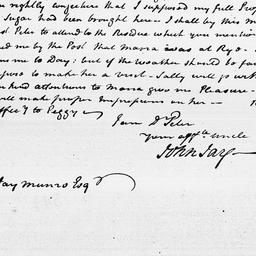 rightly conjecture that I supposed my full Prop
Sugar had been brought here - I shall by this m
st Peter to attend to the Residue which you mention
ed me by the Post that Maria was at Rye -
me to Day; but if the weather should be fai
pose to make her a visit - Sally will go with
kind attentions to Maria give me Pleasure -
will make proper Impressions on her -
affecy to Peggy -
I am Dr Peter
your affte uncle
John Jay -
Jay Munro Esqr